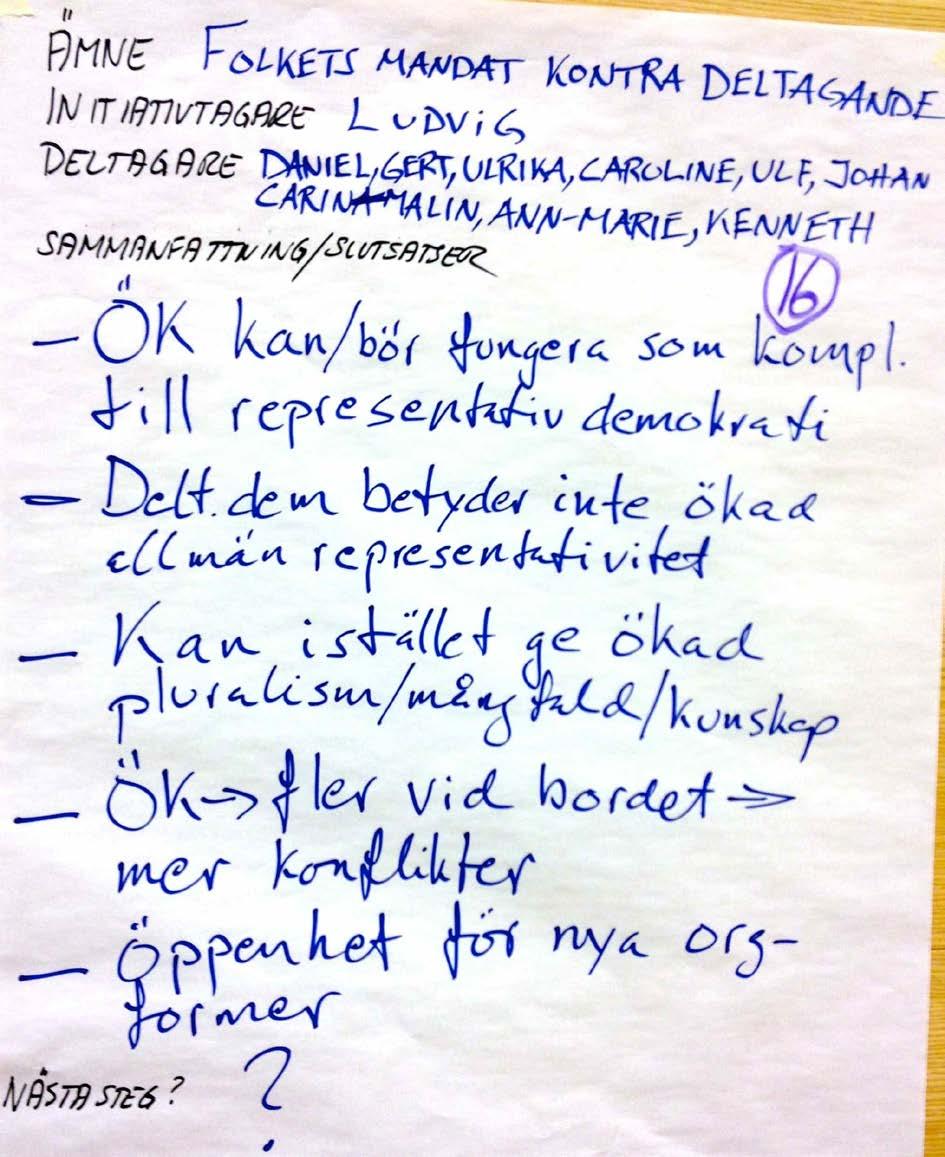 ÄMNE FOLKETS MANDAT KONTRA DELTAGANDE
INITIATIVTAGARE LUDVIG
DELTAGARE DANIEL, GERT, ULRIKA, CAROLINE, ULF, JOHAN
CARINA MALIN, ANN-MARIE, KENNETH
SAMMANFATTNING/SLUTSATSER
16
– ÖK kan/bör fungera som kompl.
till representativ demokrati
– Delt. dem betyder inte ökad
allmän representativitet
– Kan istället ge ökad
pluralism/mångfald/kunskap
– ÖK → fler vid bordet →
mer konflikter
– Öppenhet för nya org-
former
NÄSTA STEG? ?